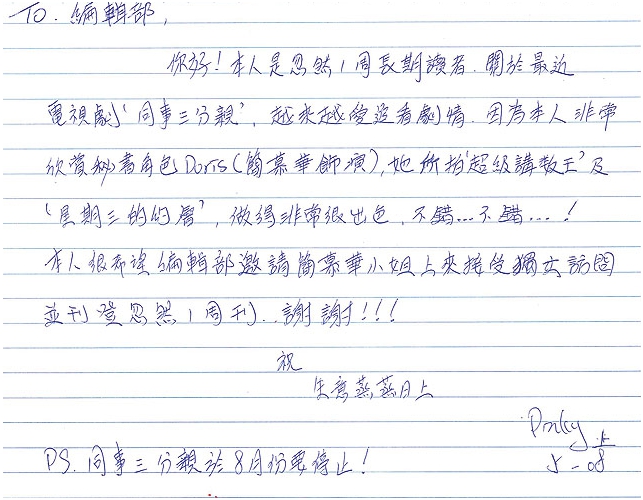 TO. 編輯部,
你好! 本人是忽然1周長期讀者. 關於最近
電視劇‘同事三分親’, 越來越愛追看劇情. 因為本人非常
欣賞秘書角色Doris(簡慕華飾演), 她所拍‘超級講数王’及
‘星期三的約會’, 做得非常很出色, 不錯...不錯...!
本人很希望編輯部邀請簡慕華小姐上來接受獨立訪問
並刊登忽然1周刊..謝謝!!!
祝
生意蒸蒸日上
Pinky 上
5-08
PS. 同事三分親於8月份要停止!